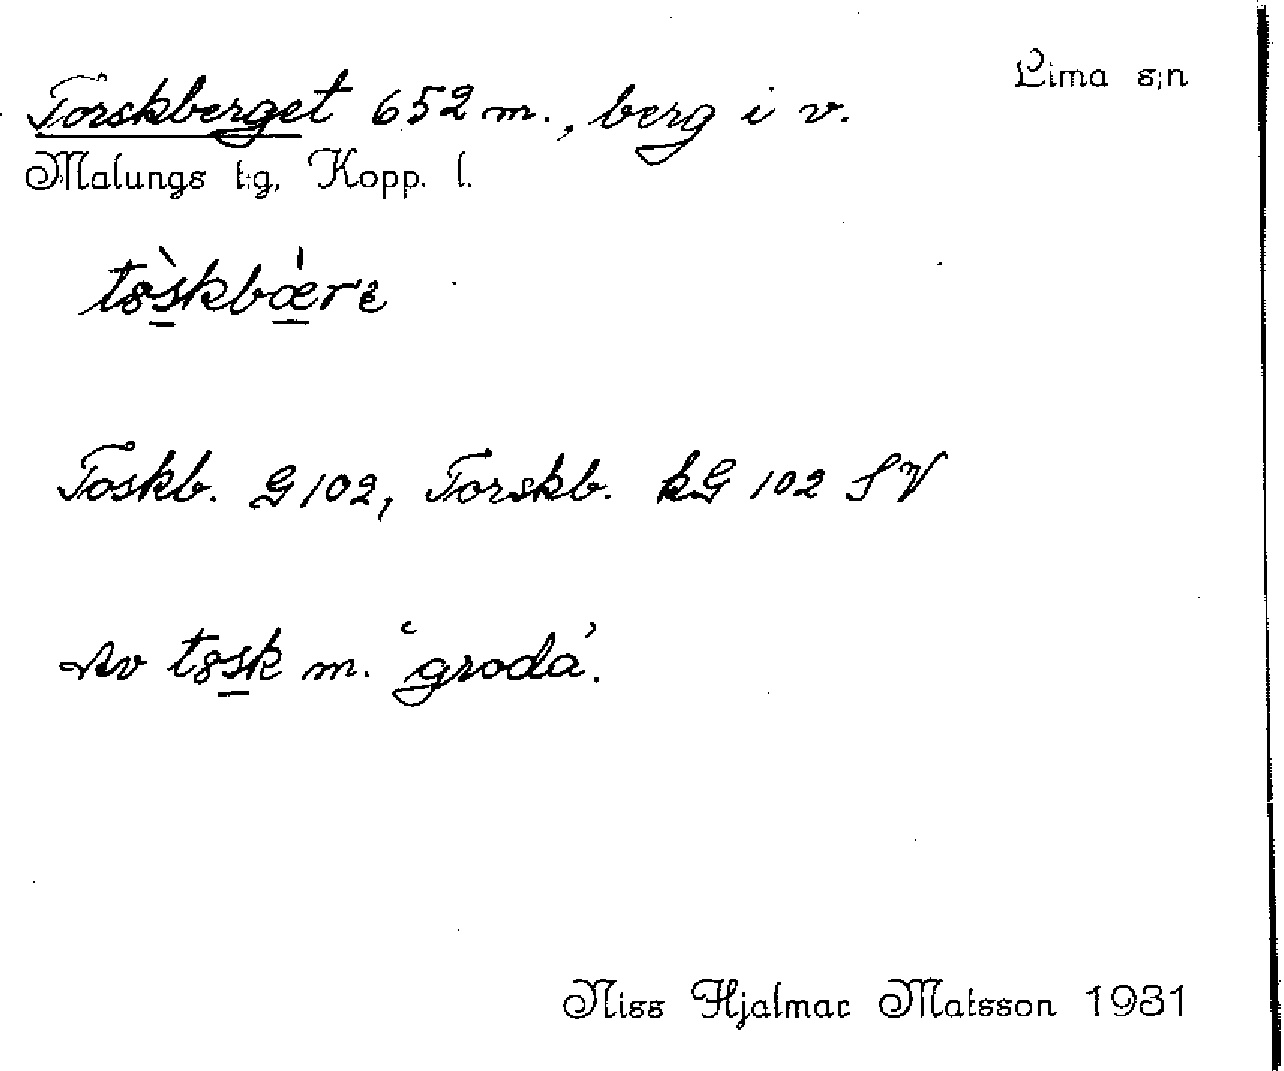 Lima s;n
Torskberget 652 m., berg i v.
Malungs t:g, Kopp. l.
tȣ̀skbǽrε
Toskb. G 102, Torskb. kG 102 SV
Av tȣsk m. ‘groda’.
Niss Hjalmar Matsson 1931